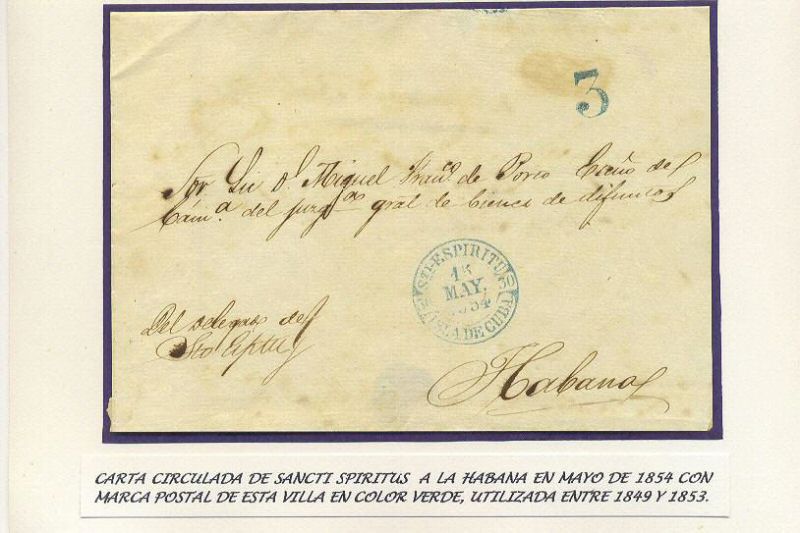 3
Sor Lic D. Miguel Fran.co de Porco Escño de
Cám.a del juzg.do gral de bienes de difuntos
STI-ESPIRITUS
15
MAY.
1854
ISLA DE CUBA
Del delegado de
Sto Epitu
Habana
CARTA CIRCULADA DE SANCTI SPIRITUS A LA HABANA EN MAYO DE 1854 CON
MARCA POSTAL DE ESTA VILLA EN COLOR VERDE, UTILIZADA ENTRE 1849 Y 1853.